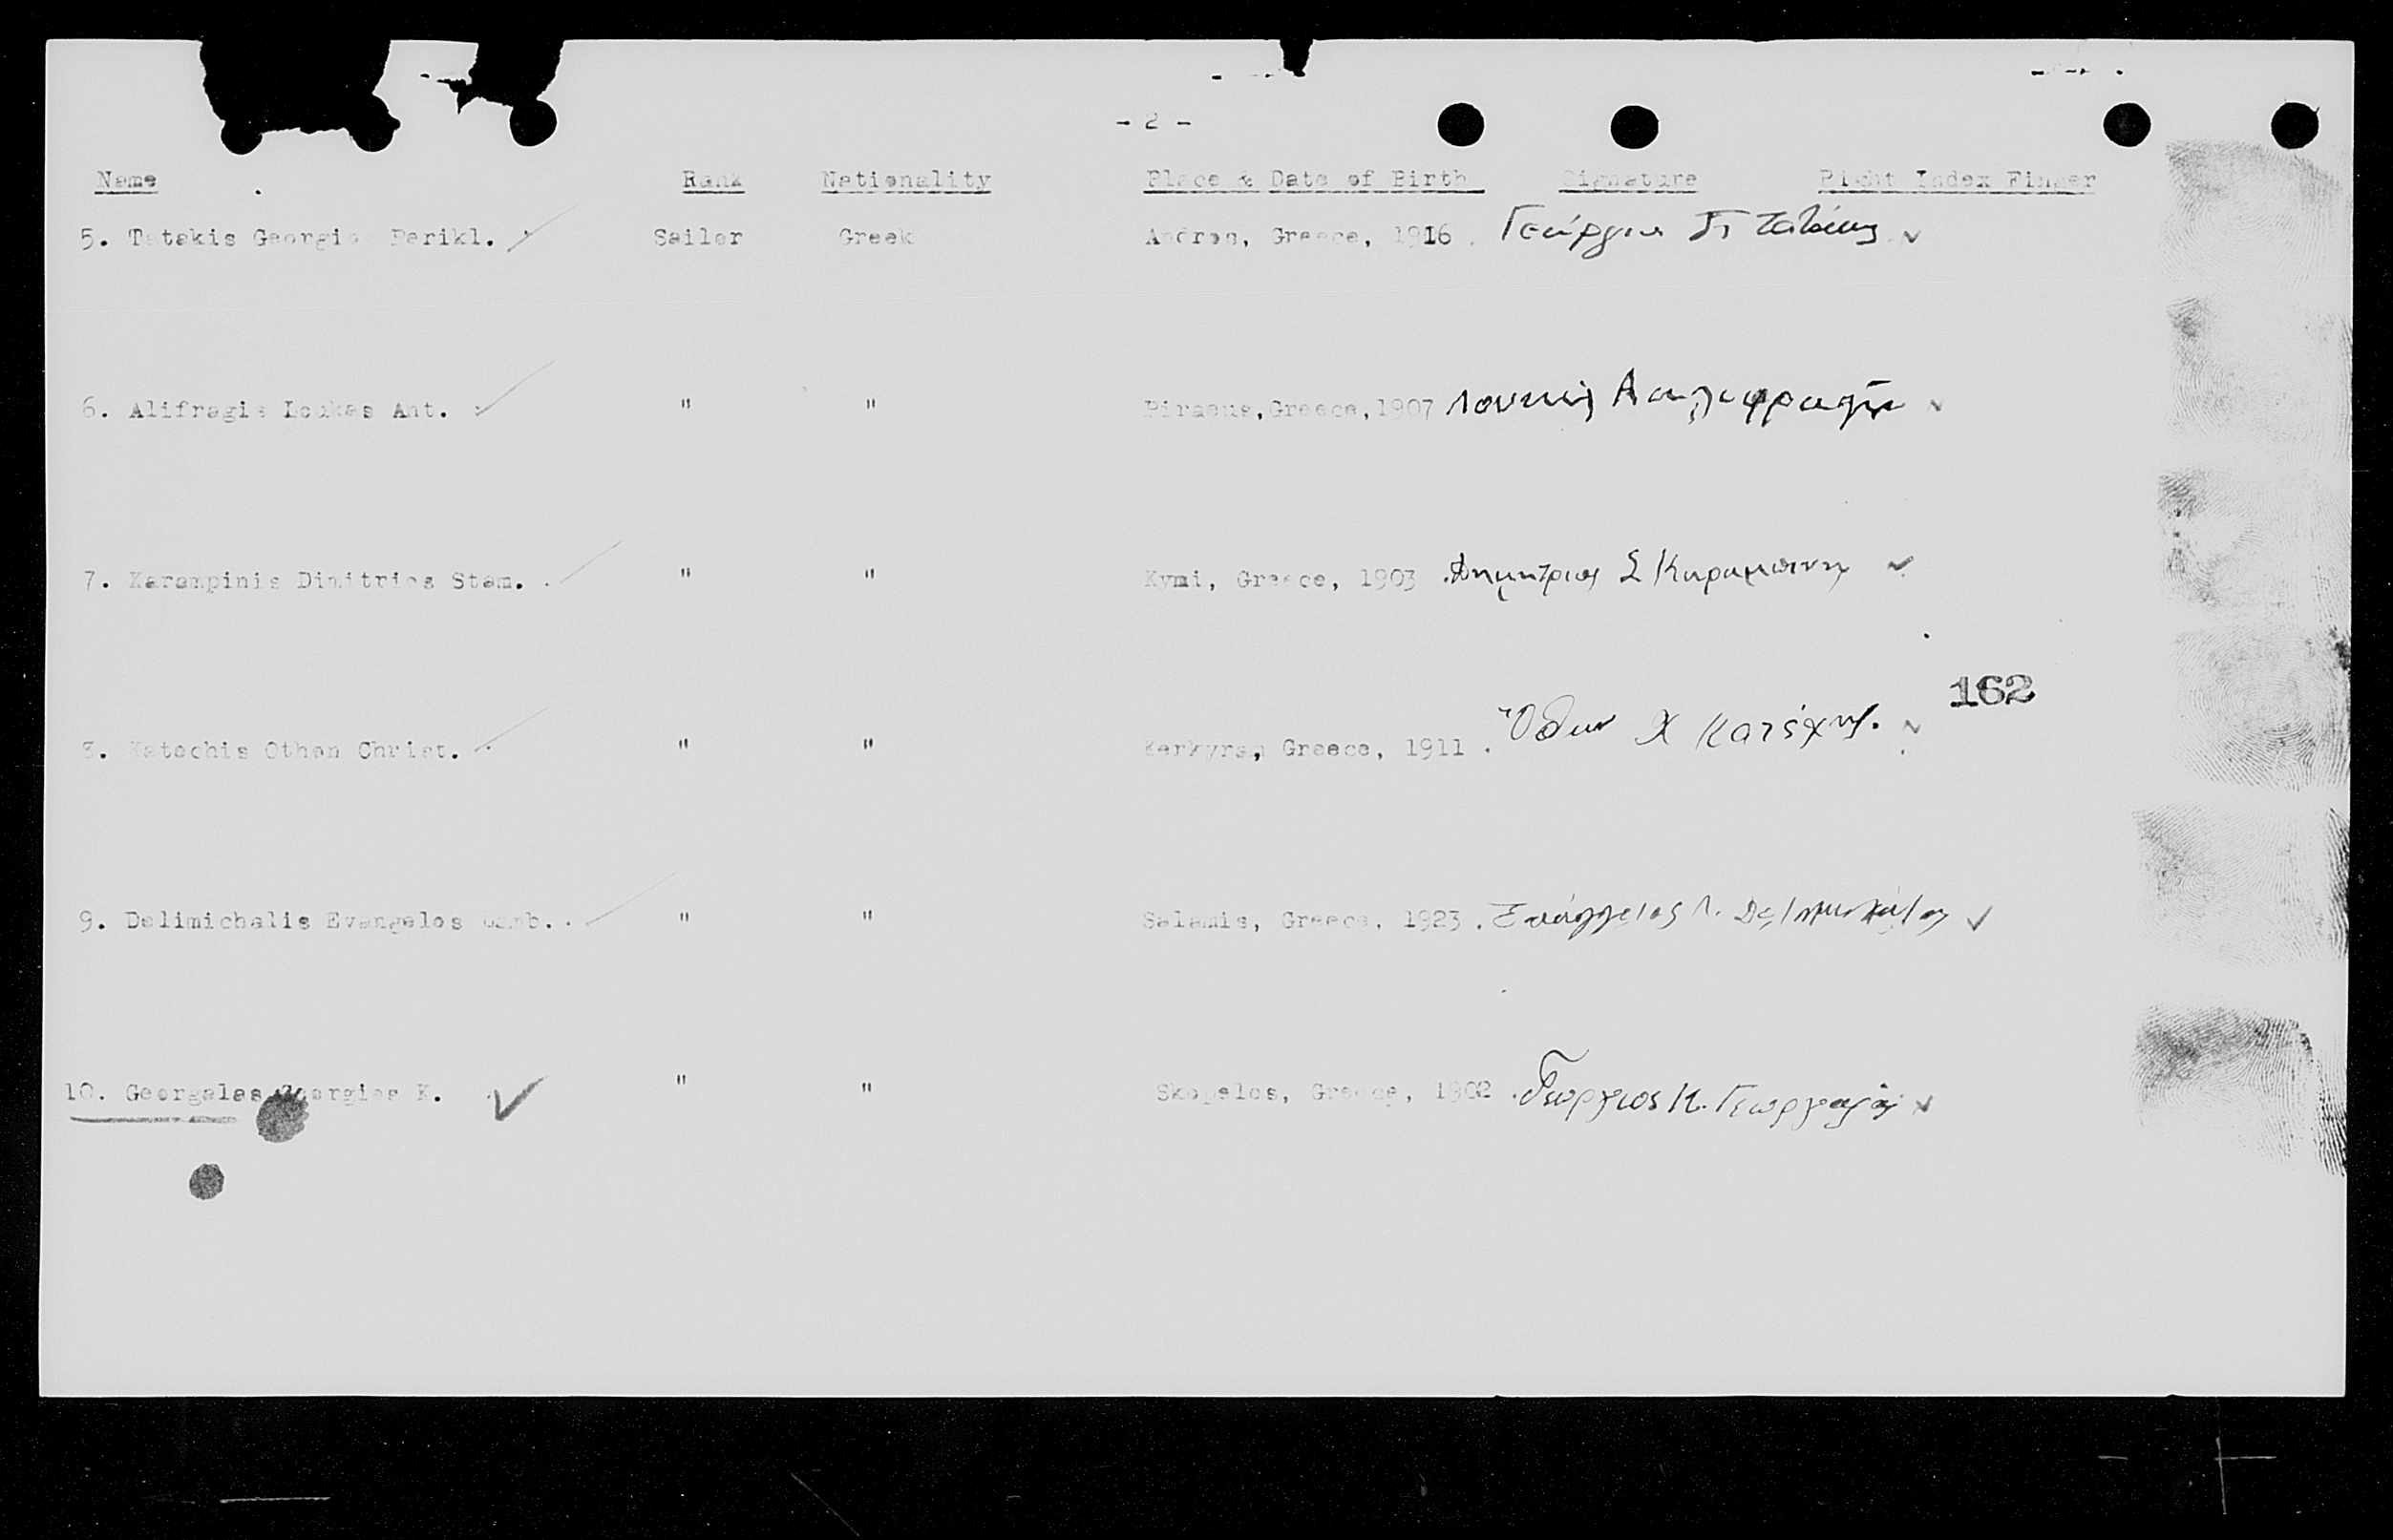 - 2 -
Name Rank Nationality Place & Date of Birth Signature Right Index Finger
5. Tatakis Georgios Perikl. Sailor Greek Andros, Greece, 1916. Γεώργιος Π Τατάκης
6. Alifragis Loukas Ant. " " Piraeus, Greece, 1907 Λουκάς
7. Karampinis Dimitrios Stam. " " Kymi, Greece, 1903 Δημητριος Σ Καραμπινης
162
8. Katechis Othon Christ. " " Kerkyra, Greece, 1911. Όθων Χ Κατέχης.
9. Delimichalis Evangelos " " Salamis, Greece, 1923. Ευάγγελος Λ. Δεληmιχάλης
10. Georgalas Georgios K. " " Skopelos, Greece, 1902. Γεώργιος Κ. Γεωργαλάς